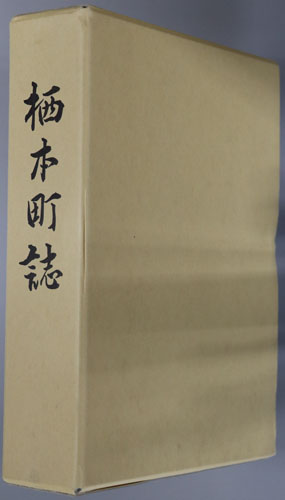 栖本町誌